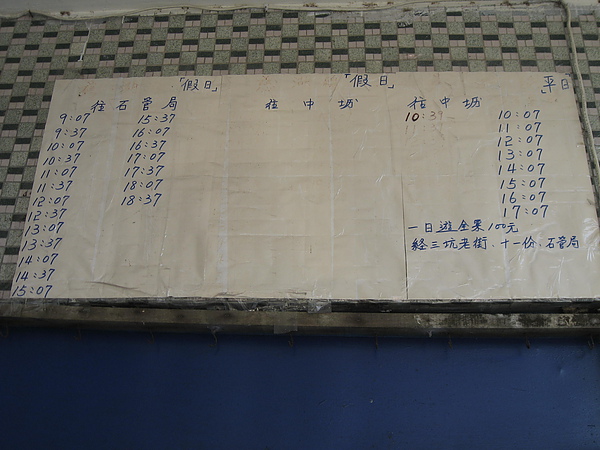 「假日」
往石管局
9:07
9:37
10:07
10:37
11:07
11:37
12:07
12:37
13:07
13:37
14:07
14:37
15:07
15:37
16:07
16:37
17:07
17:37
18:07
18:37
「假日」
往中坜
平日
往中坜
10:39
10:07
11:07
12:07
13:07
14:07
15:07
16:07
17:07
一日遊全票100元
経三坑老街、十一份、石管局